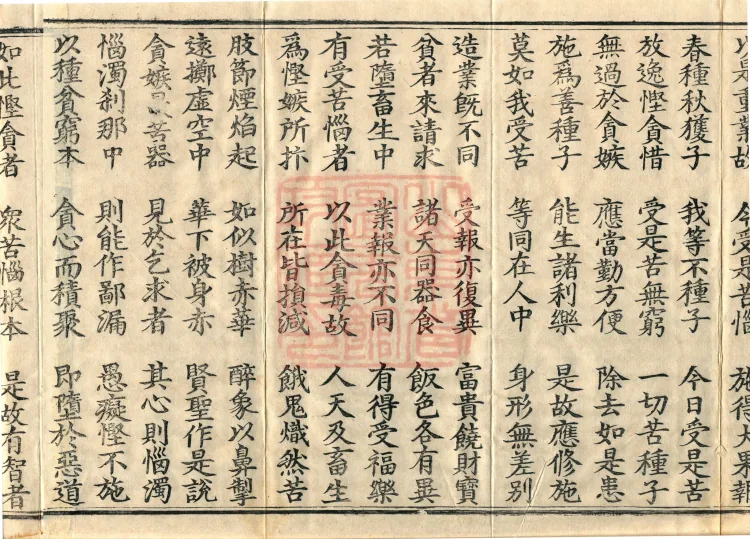 以是重業故 今受是苦惱 施得大果報
春種秋獲子 我等不種子 今日受是苦
放逸慳貪惜 受是苦無窮 一切苦種子
無過於貪嫉 應當勤方便 除去如是患
施爲善種子 能生諸利樂 是故應修施
莫如我受苦 等同在人中 身形無差別
造業旣不同 受報亦復異 富貴饒財寶
貧者來請求 諸天同器食 飯色各有異
若墮畜生中 業報亦不同 有得受福樂
有受苦惱者 以此貪毒故 人天及畜生
爲慳嫉所 所在皆損減 餓鬼熾然苦
肢節煙焰起 如似樹赤華 醉象以鼻掣
遠擲虛空中 華下被身赤 賢聖作是說
貪嫉 苦器 見於乞求者 其心則惱濁
惱濁刹那中 則能作鄙漏 愚癡慳不施
以種貧窮本 貪心而積聚 即墮於惡道
如此慳貪者 衆苦惱根本 是故有智者